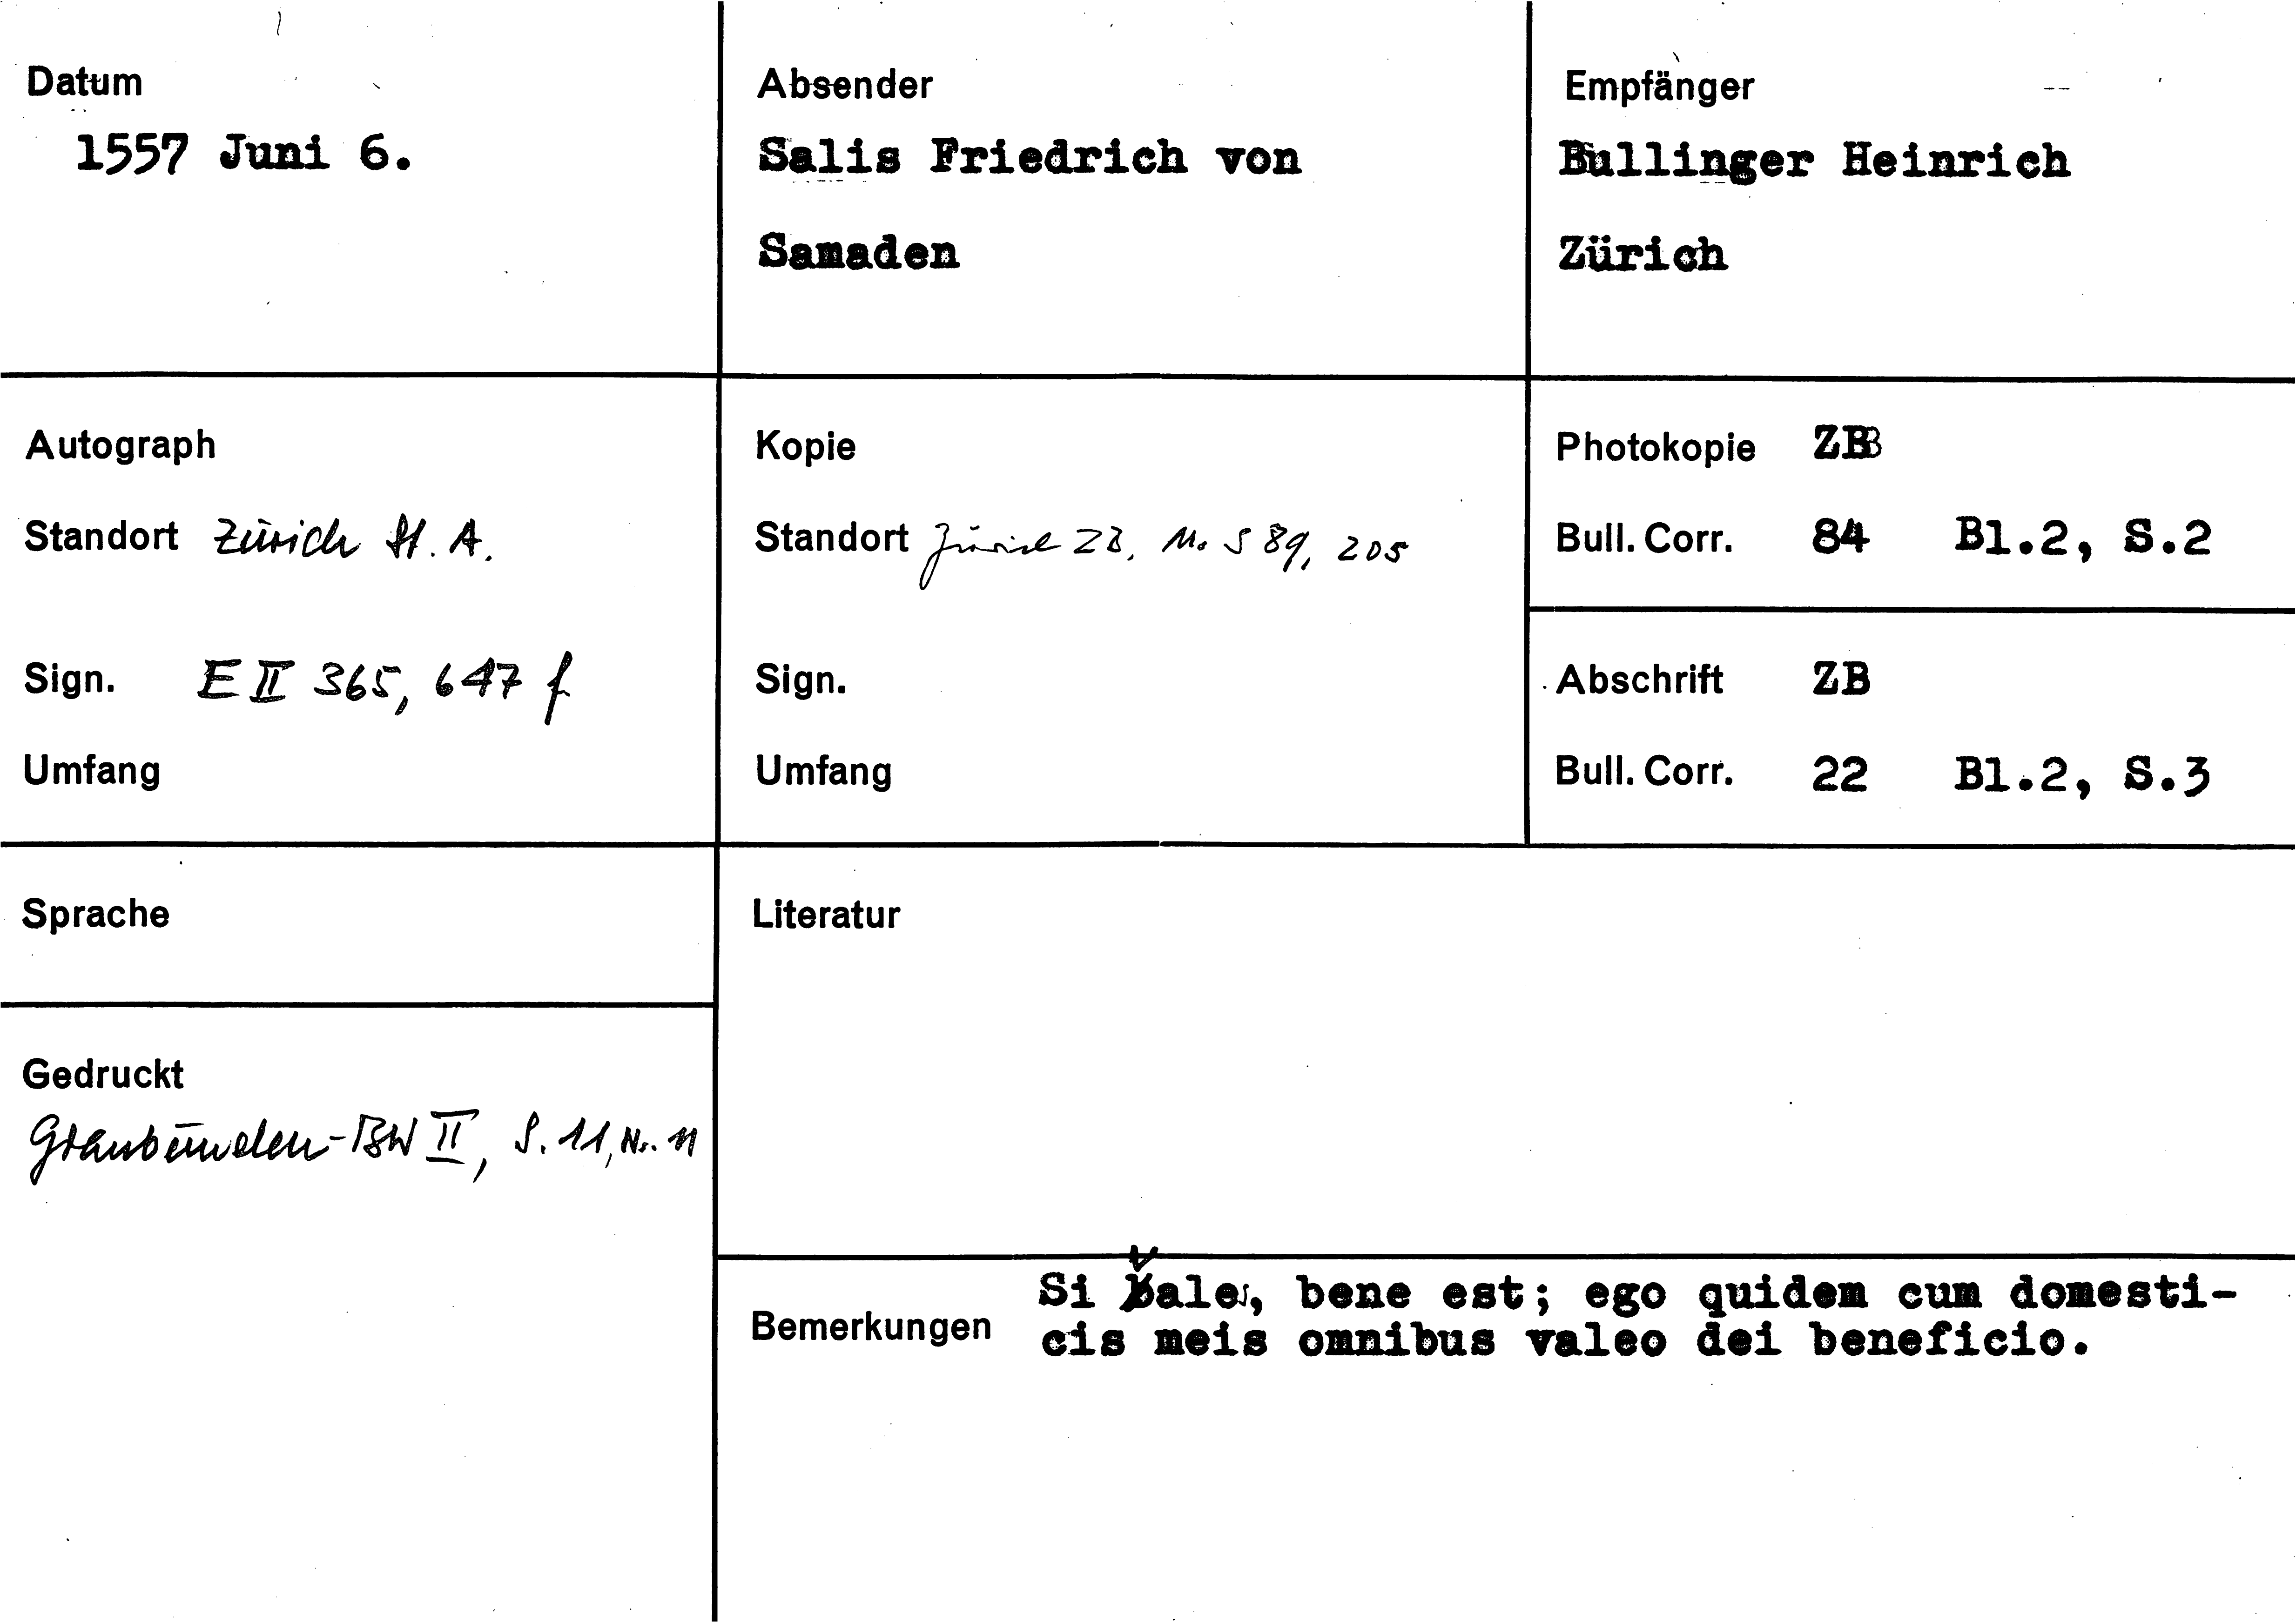 Datum
1557 Juni 6.
Absender
Salis Friedrich von
Samaden
Empfänger
Bullinger Heinrich
Zürich
Autograph
Standort Zürich St. A.
Sign. E II 365, 647 f
Umfang
Kopie
Standort Zürich ZB, Ms S 89, 205
Sign.
Umfang
Photokopie ZB
Bull. Corr. 84 Bl.2, S.2
Abschrift ZB
Bull. Corr. 22 Bl.2, S.3
Sprache
Gedruckt
Graubünden-BW II, S. 11, Nr. 11
Literatur
Bemerkungen
Si vales, bene est; ego quidem cum domesti-
cis meis omnibus valeo dei beneficio.